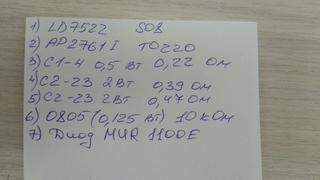 1) LD7522 SO8
2) AP2761I TO220
3) С1-4 0,5 Вт 0,22 Ом
4) С2-23 2Вт 0,39 Ом
5) С2-23 2Вт 0,47 Ом
6) 0805 (0,125 Вт) 10 кОм
7) Диод MUR 1100E